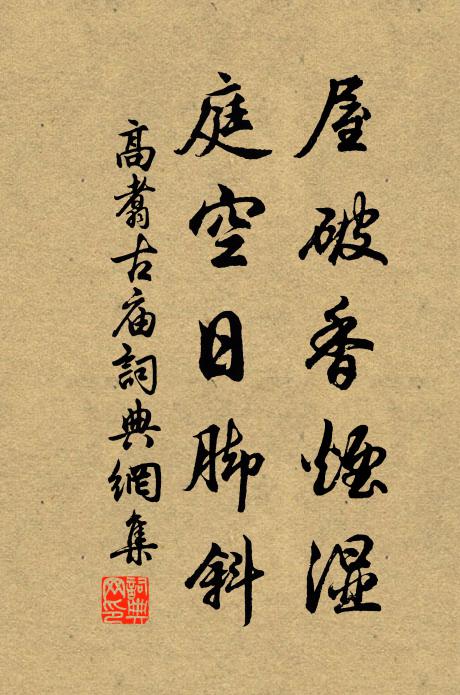 屋破香煙湿
庭空日脚斜
高翥古庙詞典網集
詞典网印